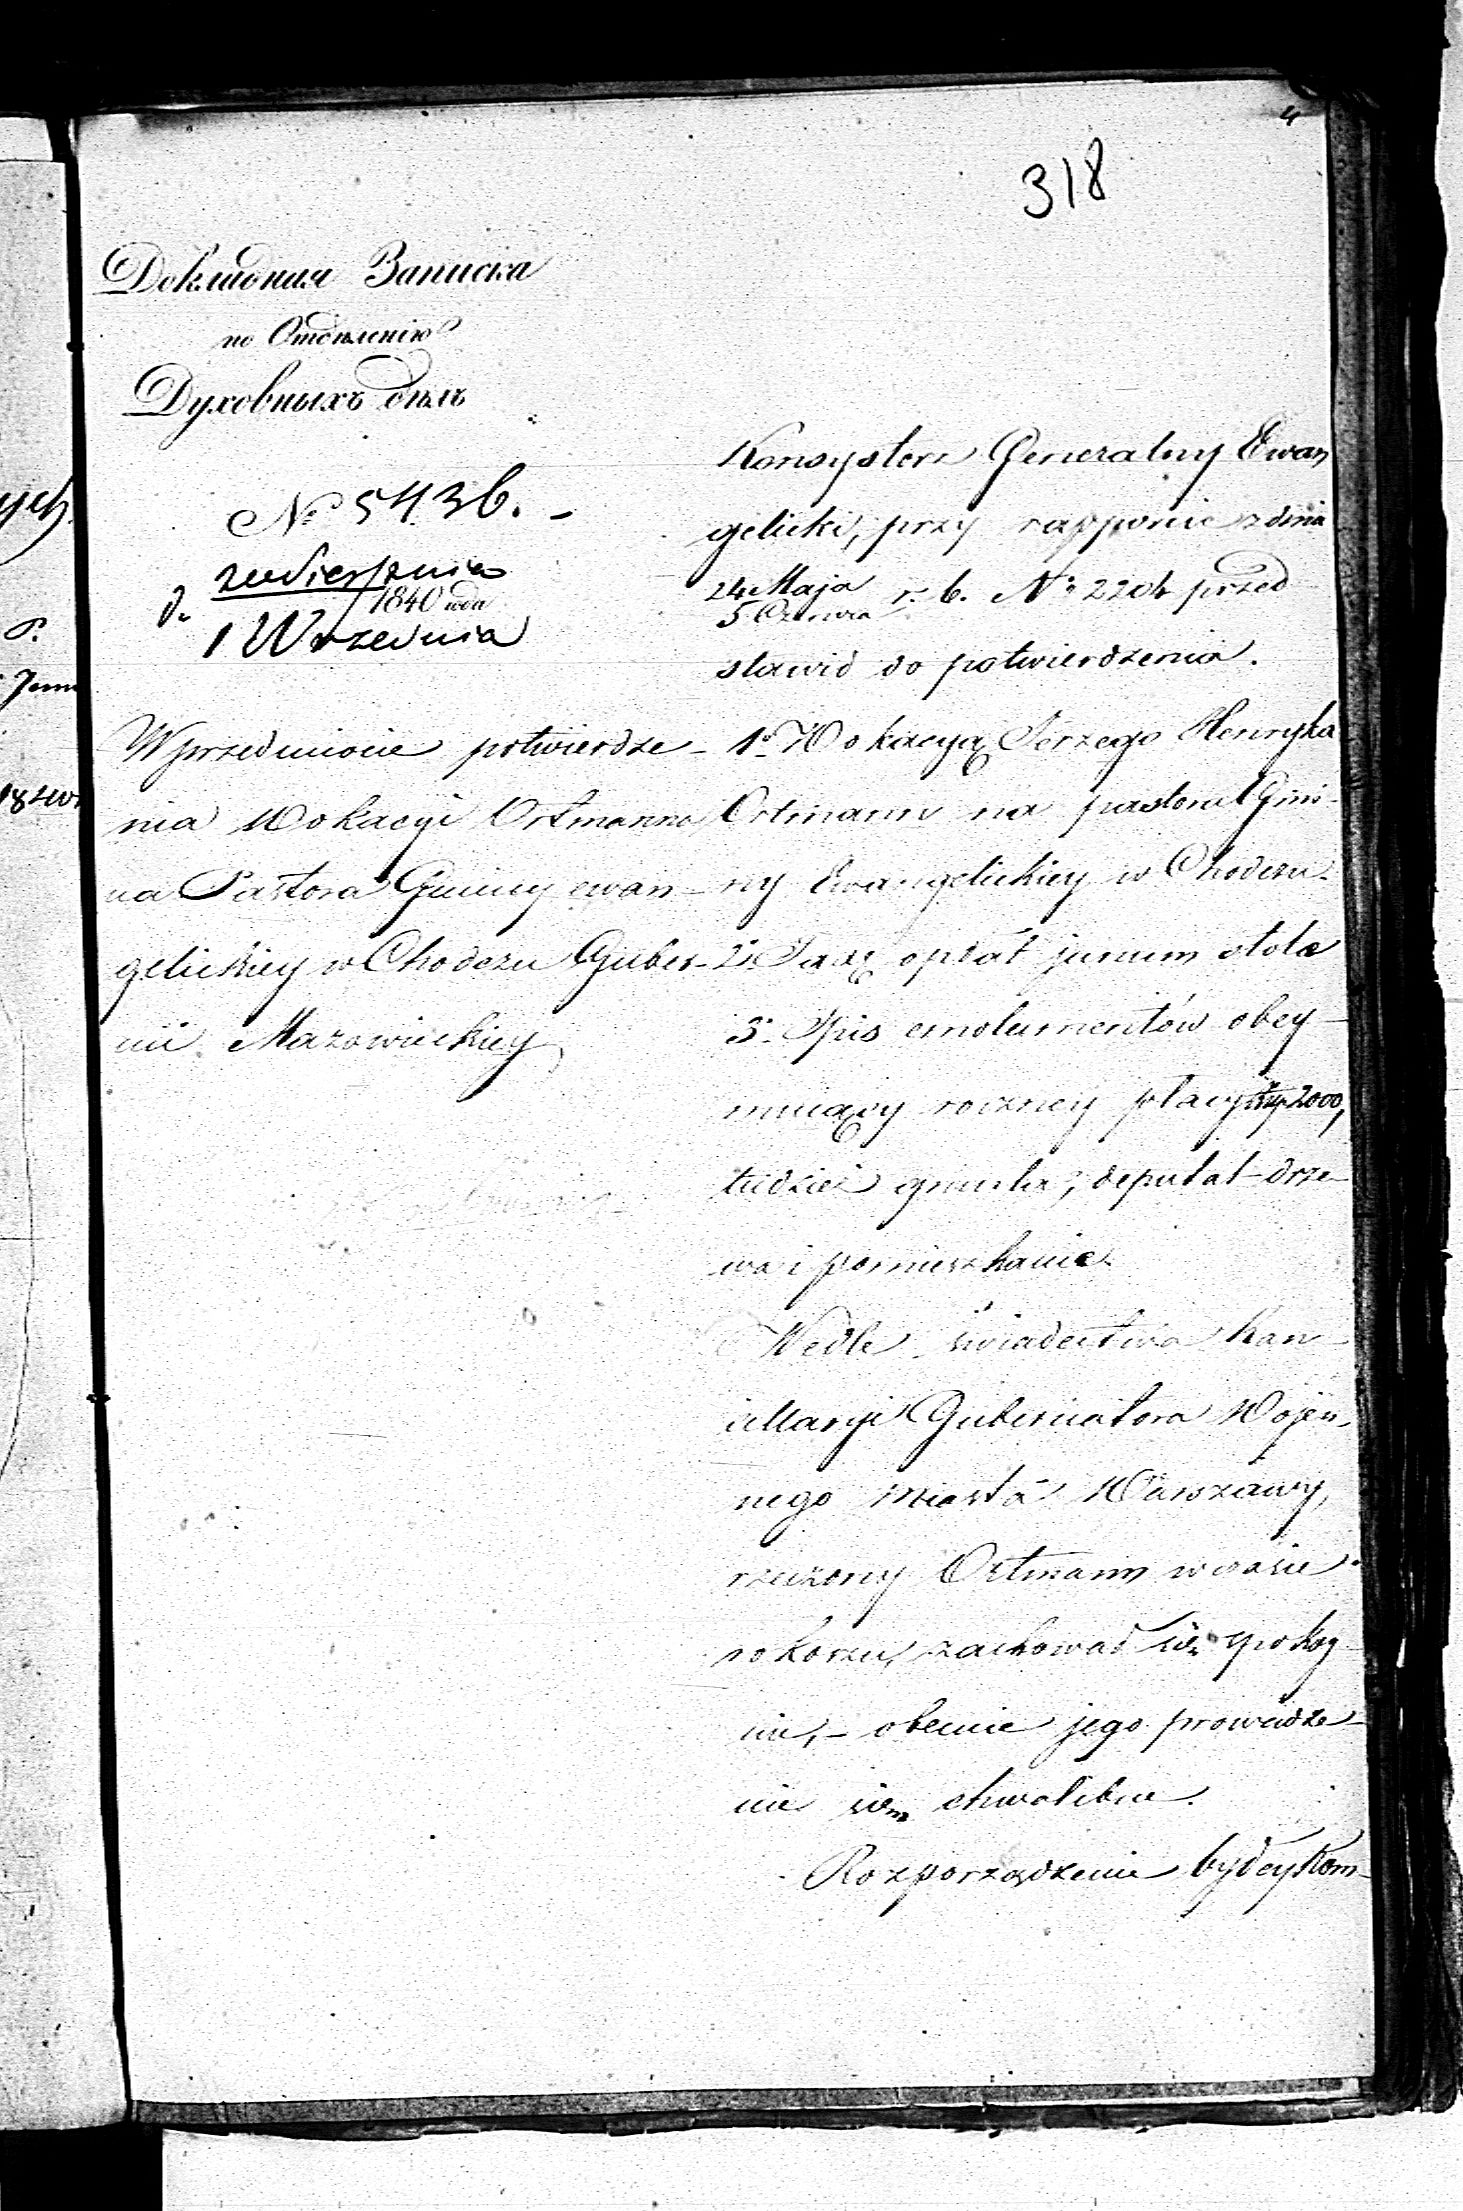 4
318
Докладная Записка
по Отдѣленію
Духовныхъ дѣлъ
№ 5436. -
d. 20 Sierpnia
1840 года
1 Września
W przedmiocie potwierdze-
nia Wokacyi Ortmanna
na Pastora Gminy ewan-
gelickiey w Chodczu Guber-
nii Mazowieckiey
Konsystorz Generalny Ewan
gelicki, przy rapporcie z dnia
24 Maja
5 Czerwca r. b. № 2204 przed
stawił do potwierdzenia.
1o Wokacyą Jerzego Henryka
Ortmann na pastora Gmi-
ny Ewangelickiey w Chodczu.
2o Taxę opłat jurium stolae
3o Spis emolumentów obey-
muiący roczney płacy złp 2000,
tudzież grunta, deputat drze-
wa i pomieszkanie.
Wedle świadectwa Kan-
cellaryi Gubernatora Wojen-
nego Miasta Warszawy,
rzeczony Ortmann w czasie
rokoszu, zachował się spokoy-
nie, - obecnie jego prowadze-
nie jest chwalebne.
Rozporządzenie byłey Kom-